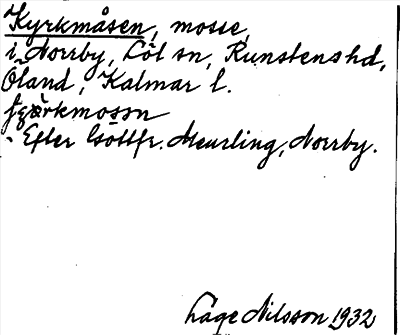 Kyrkmåsen, mosse,
i Norrby, Löt sn, Runstens hd,
Öland, Kalmar l.
- Efter Gottfr. Meurling, Norrby.
Lage Nilsson 1932